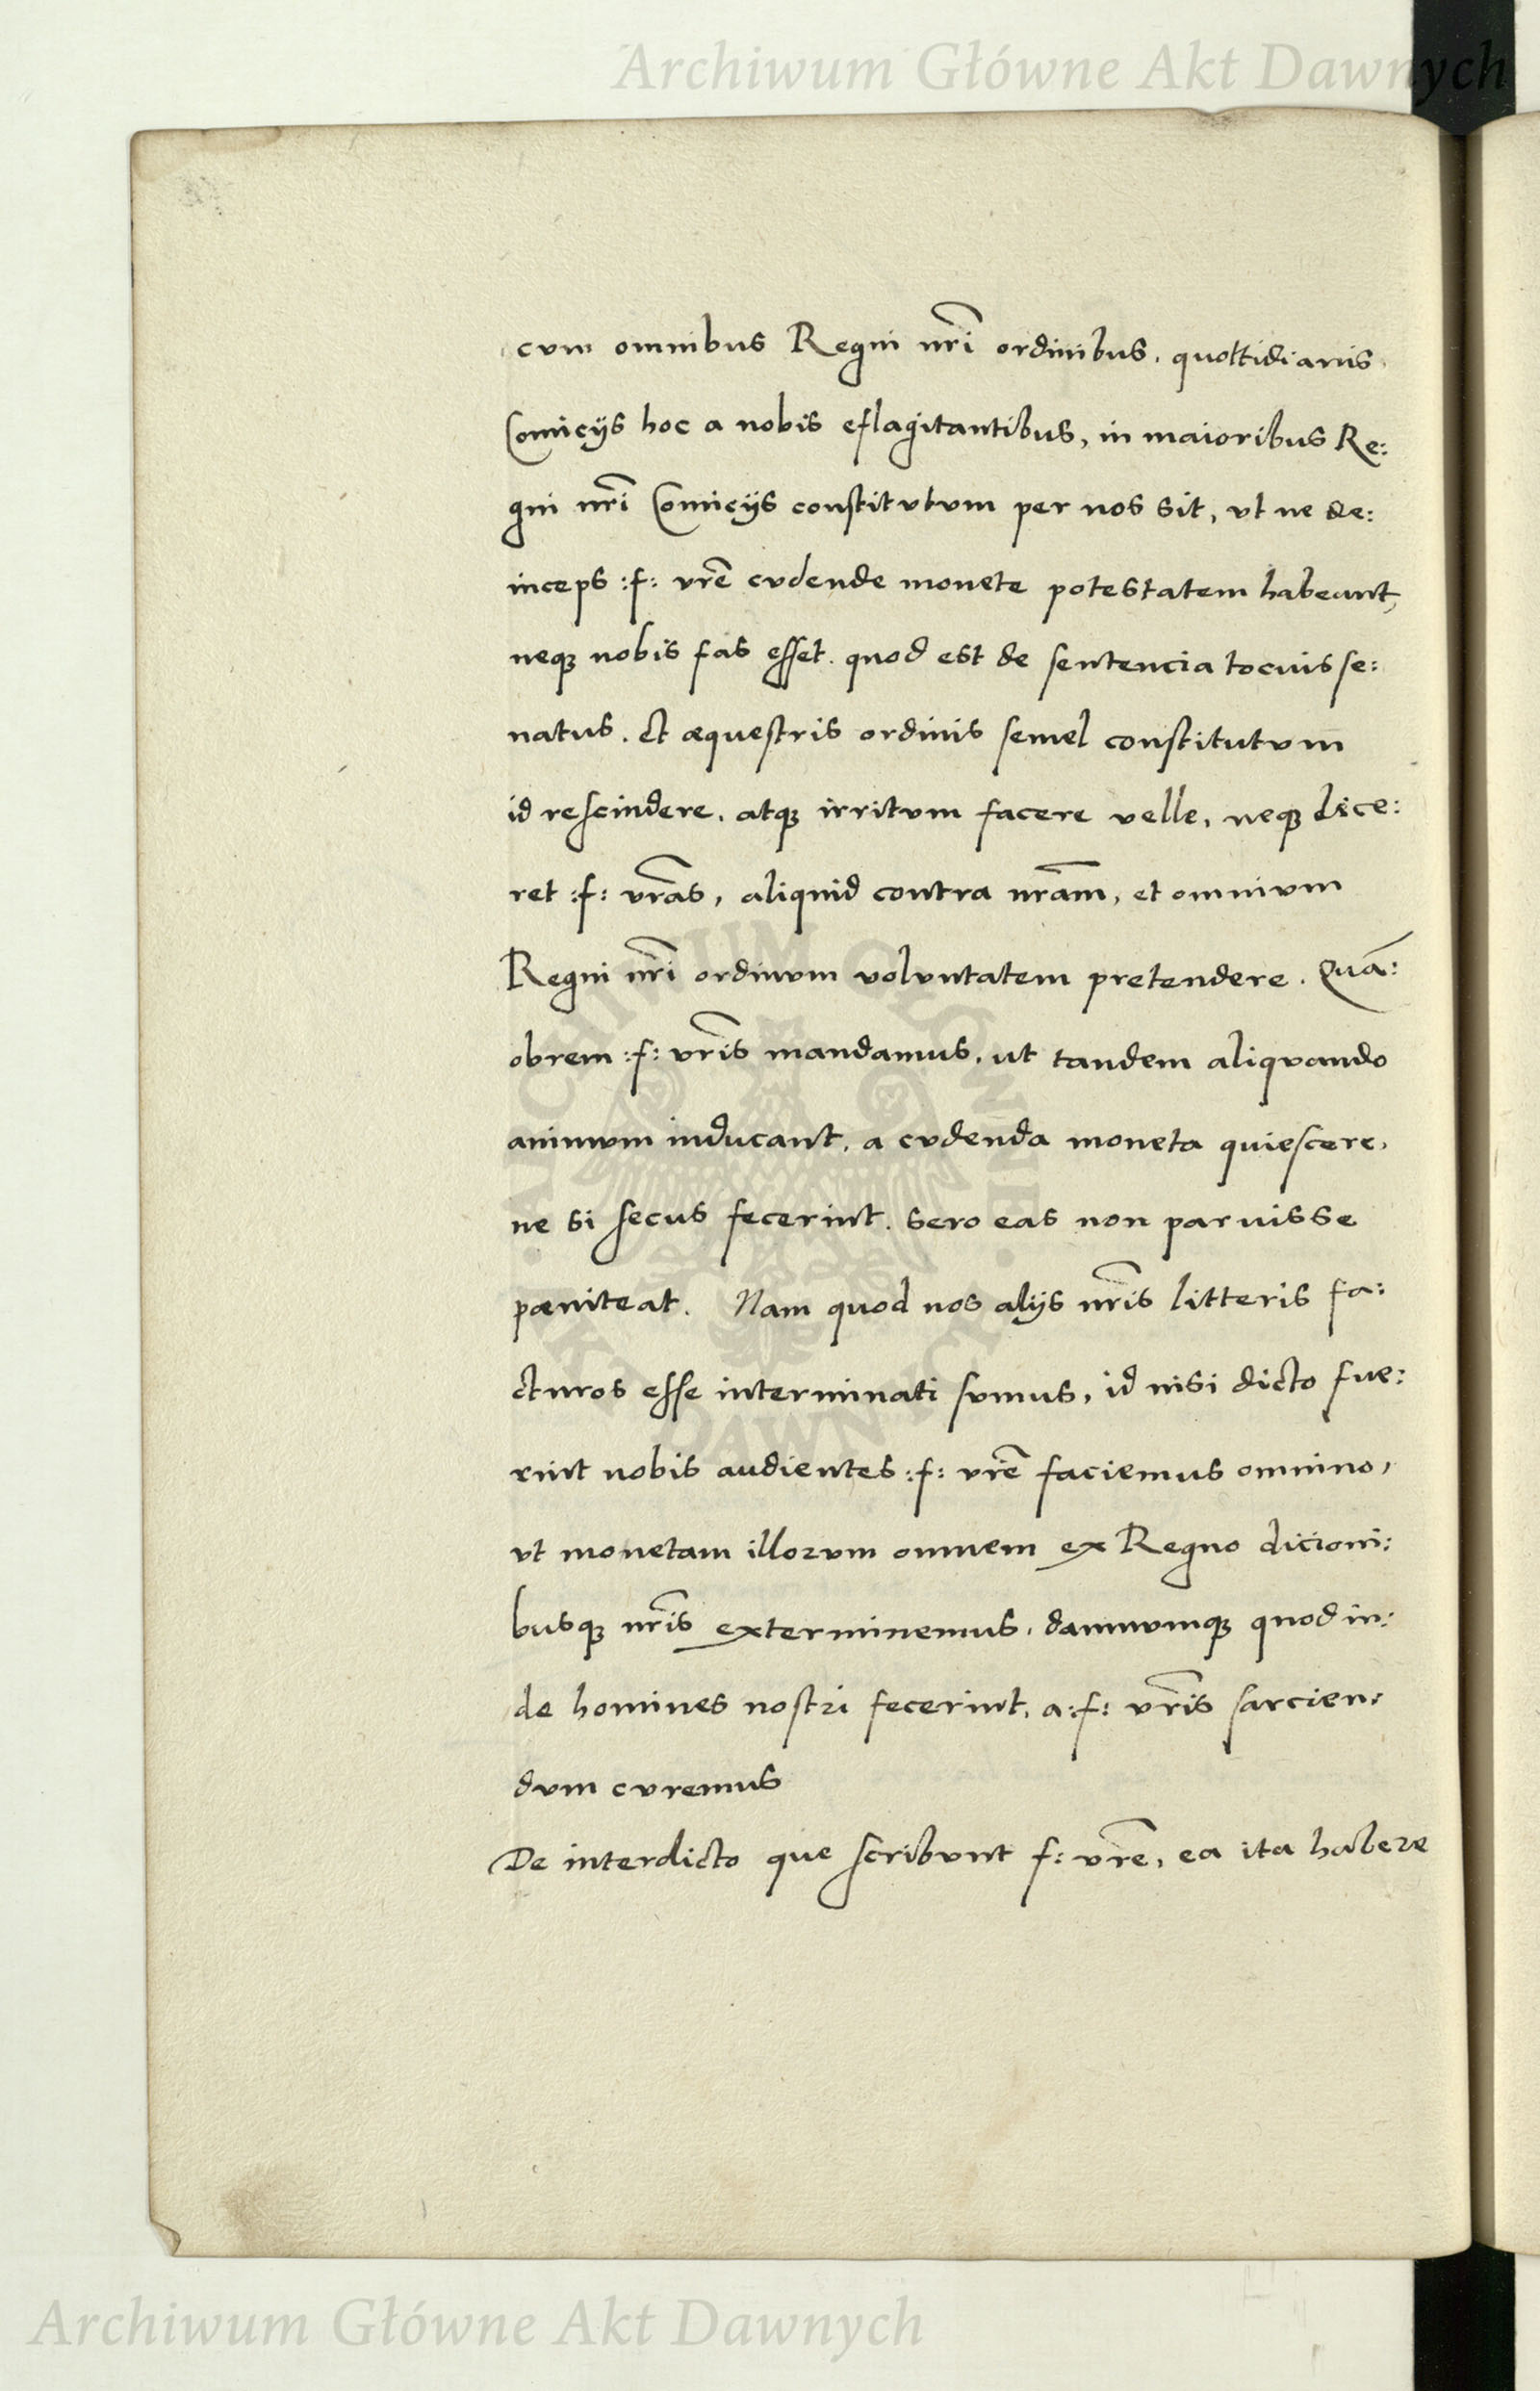 Archiwum Główne Akt Dawnych
cvm omnibus Regni nr̃i ordinibus, quottidianis
Comicijs hoc a nobis eflagitantibus, in maioribus Re:
gni nr̃i Comicijs constitvtvm per nos sit, vt ne de:
inceps :f: vrẽ cvdende monete potestatem habeant,
neqꝫ nobis fas esset. quod est de sentencia tocius se:
natus. et æquestris ordinis semel constitutvm
id rescindere, atqꝫ irritvm facere velle, neqꝫ lice:
ret :f: vrãs, aliquid contra nrãm, et omnivm
Regni nr̃i ordinvm volvntatem pretendere. Quã:
obrem :f: vr̃is mandamus, ut tandem aliqvando
animvm inducant, a cvdenda moneta quiescere,
ne si secus fecerint. sero eas non parvisse
pæniteat. Nam quod nos alijs nr̃is litteris fa:
cturos esse interminati svmus, id nisi dicto fue:
rint nobis audientes :f: vrẽ faciemus omnino,
vt monetam illorvm omnem ex Regno dicioni:
busqꝫ nr̃is exterminemus, damnvmqꝫ quod in:
de homines nostri fecerint, a :f: vr̃is sarcien:
dvm cvremus
De interdicto que scribvnt f: vrẽ, ea ita habere
ARCHIWUM GŁÓWNE AKT DAWNYCH
Archiwum Główne Akt Dawnych